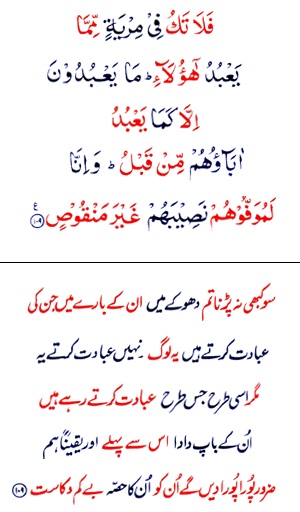 فَلَا تَكُ فِىْ مِرْيَةٍ مِّمَّا
يَعْبُدُ هٰٓؤُلَآءِ ؕ مَا يَعْبُدُوْنَ
اِلَّا كَمَا يَعْبُدُ
اٰبَآؤُهُمْ مِّنْ قَبْلُ ؕ وَاِنَّا
لَمُوَفُّوْهُمْ نَصِيْبَهُمْ غَيْرَ مَنْقُوْصٍ ۱۰۹ ع
سو کبھی نہ پڑنا تم دھوکے میں ان کے بارے میں جن کی
عبادت کرتے ہیں یہ لوگ۔ نہیں عبادت کرتے یہ
مگر اسی طرح جس طرح عبادت کرتے رہے ہیں
اُن کے باپ دادا اس سے پہلے اور یقیناً ہم
ضرور پُورا پُورا دیں گے اُن کو اُن کا حصّہ بے کم و کاست ۱۰۹